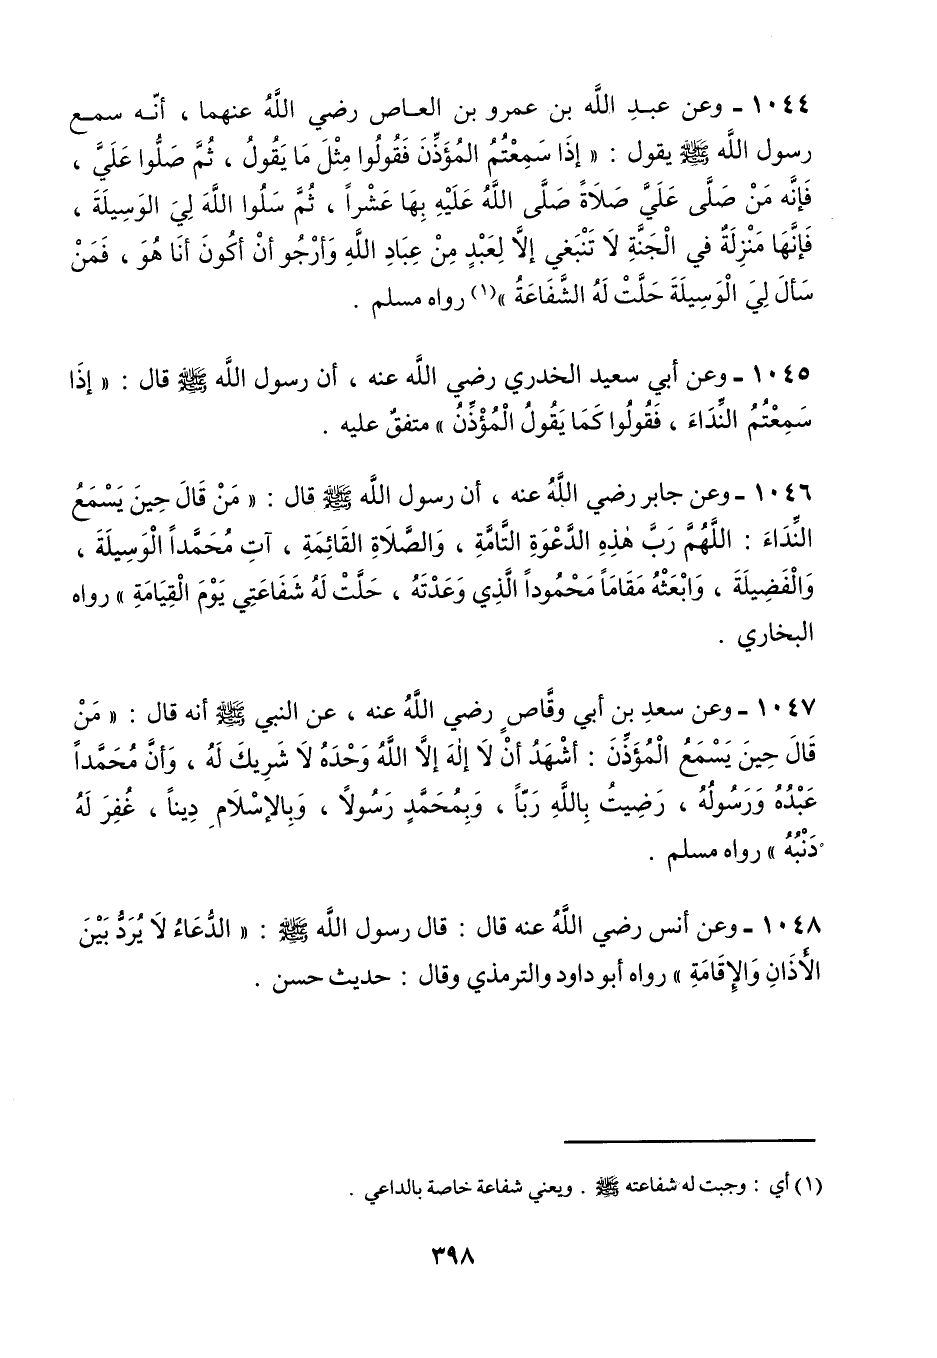 ١٠٤٤ ـ وعن عبـدِ اللَّه بن عمرو بن العـاص رضي اللَّهُ عنهما ، أنّـه سمـع
رسول اللَّه ﷺ يقول : « إذَا سَمِعْتُمُ المُؤَذِّنَ فَقُولُوا مِثْلَ مَا يَقُولُ ، ثُمَّ صَلُّوا عَلَيَّ ،
فَإنَّه مَنْ صَلَّى عَلَيَّ صَلَاةً صَلَّى اللَّهُ عَلَيْهِ بِهَا عَشْراً ، ثُمَّ سَلُوا اللَّهَ لِيَ الوَسِيلَةَ ،
فَإنَّهَا مَنْزِلَةٌ في الْجَنَّةِ لَا تَنْبَغي إلَّا لِعَبْدٍ مِنْ عِبَادِ اللَّهِ وَأرْجُو أنْ أكُونَ أنَا هُوَ ، فَمَنْ
سَألَ لِيَ الْوَسِيلَةَ حَلَّتْ لَهُ الشَّفَاعَةُ »(١) رواه مسلم .
١٠٤٥ ـ وعن أبي سعيد الخدري رضي اللَّه عنه ، أن رسول اللَّه ﷺ قال : « إذَا
سَمِعْتُمُ النِّدَاءَ ، فَقُولُوا كَمَا يَقُولُ الْمُؤْذِّنُ » متفقٌ عليه .
١٠٤٦ ـ وعن جابر رضي اللَّهُ عنه ، أن رسول اللَّه ﷺ قال : « مَنْ قَالَ حِينَ يَسْمَعُ
النِّدَاءَ : اللَّهُمَّ رَبَّ هٰذِهِ الدَّعْوَةِ التَّامَّةِ ، وَالصَّلَاةِ القَائِمَةِ ، آتِ مُحَمَّداً الْوَسِيلَةَ ،
وَالْفَضِيلَةَ ، وَابْعَثْهُ مَقَاماً مَحْمُوداً الَّذِي وَعَدْتَهُ ، حَلَّتْ لَهُ شَفَاعَتِي يَوْمَ الْقِيَامَةِ » رواه
البخاري .
١٠٤٧ ـ وعن سعدِ بن أبي وقَّاصٍ رضي اللَّهُ عنه ، عن النبي ﷺ أنه قال : « مَنْ
قَالَ حِينَ يَسْمَعُ الْمُؤَذِّنَ : أشْهَدُ أنْ لَا إلٰهَ إلَّا اللَّهُ وَحْدَهُ لَا شَرِيكَ لَهُ ، وَأنَّ مُحَمَّداً
عَبْدُهُ وَرَسُولُهُ ، رَضِيتُ بِاللَّهِ رَبّاً ، وَبِمُحَمَّدٍ رَسُولًا ، وَبِالإسْلَامِ دِيناً ، غُفِرَ لَهُ
ذَنْبُهُ » رواه مسلم .
١٠٤٨ ـ وعن أنس رضي اللَّهُ عنه قال : قال رسول اللَّه ﷺ : « الدُّعَاءُ لَا يُرَدُّ بَيْنَ
الأَذَانِ وَالإقَامَةِ » رواه أبو داود والترمذي وقال : حديث حسن .
(١) أي : وجبت له شفاعته ﷺ . ويعني شفاعة خاصة بالداعي .
٣٩٨